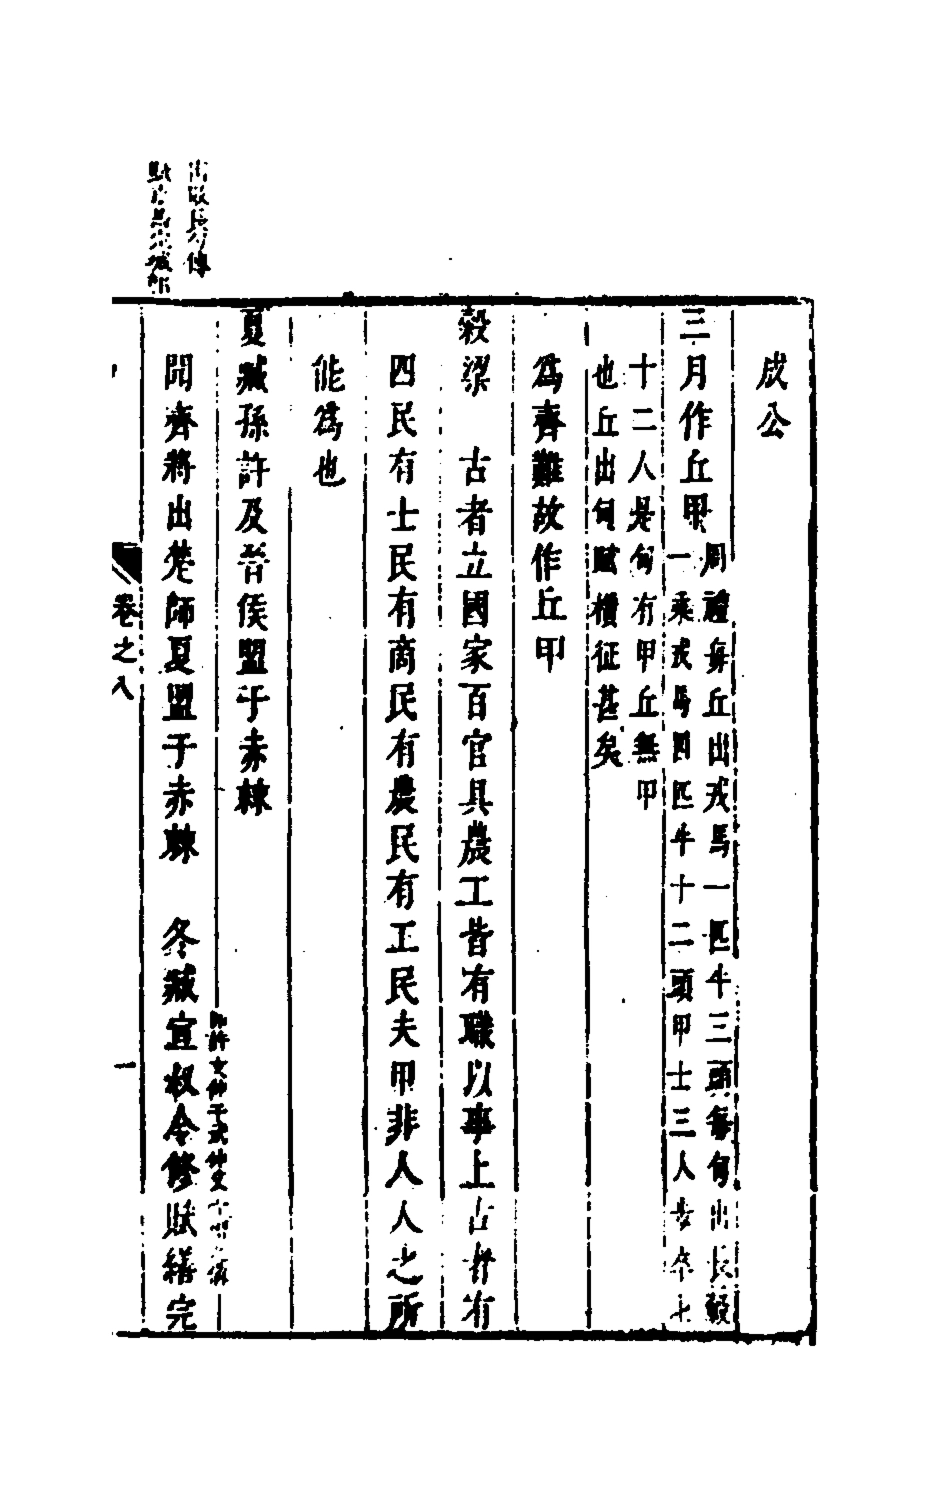 成公
三月作丘甲
周禮每丘出戎馬一匹牛三頭每甸出長轂
一乘戎馬四匹牛十二頭甲士三人步卒七
十二人是甸有甲丘無甲
也丘出甸賦橫征甚矣
為齊難故作丘甲
穀梁　古者立國家百官具農工皆有職以事上古者有
四民有士民有商民有農民有工民夫甲非人人之所
能為也
夏臧孫許及晉侯盟于赤棘
聞齊將出楚師夏盟于赤棘　冬臧宣叔令修賦繕完
卷之八
一